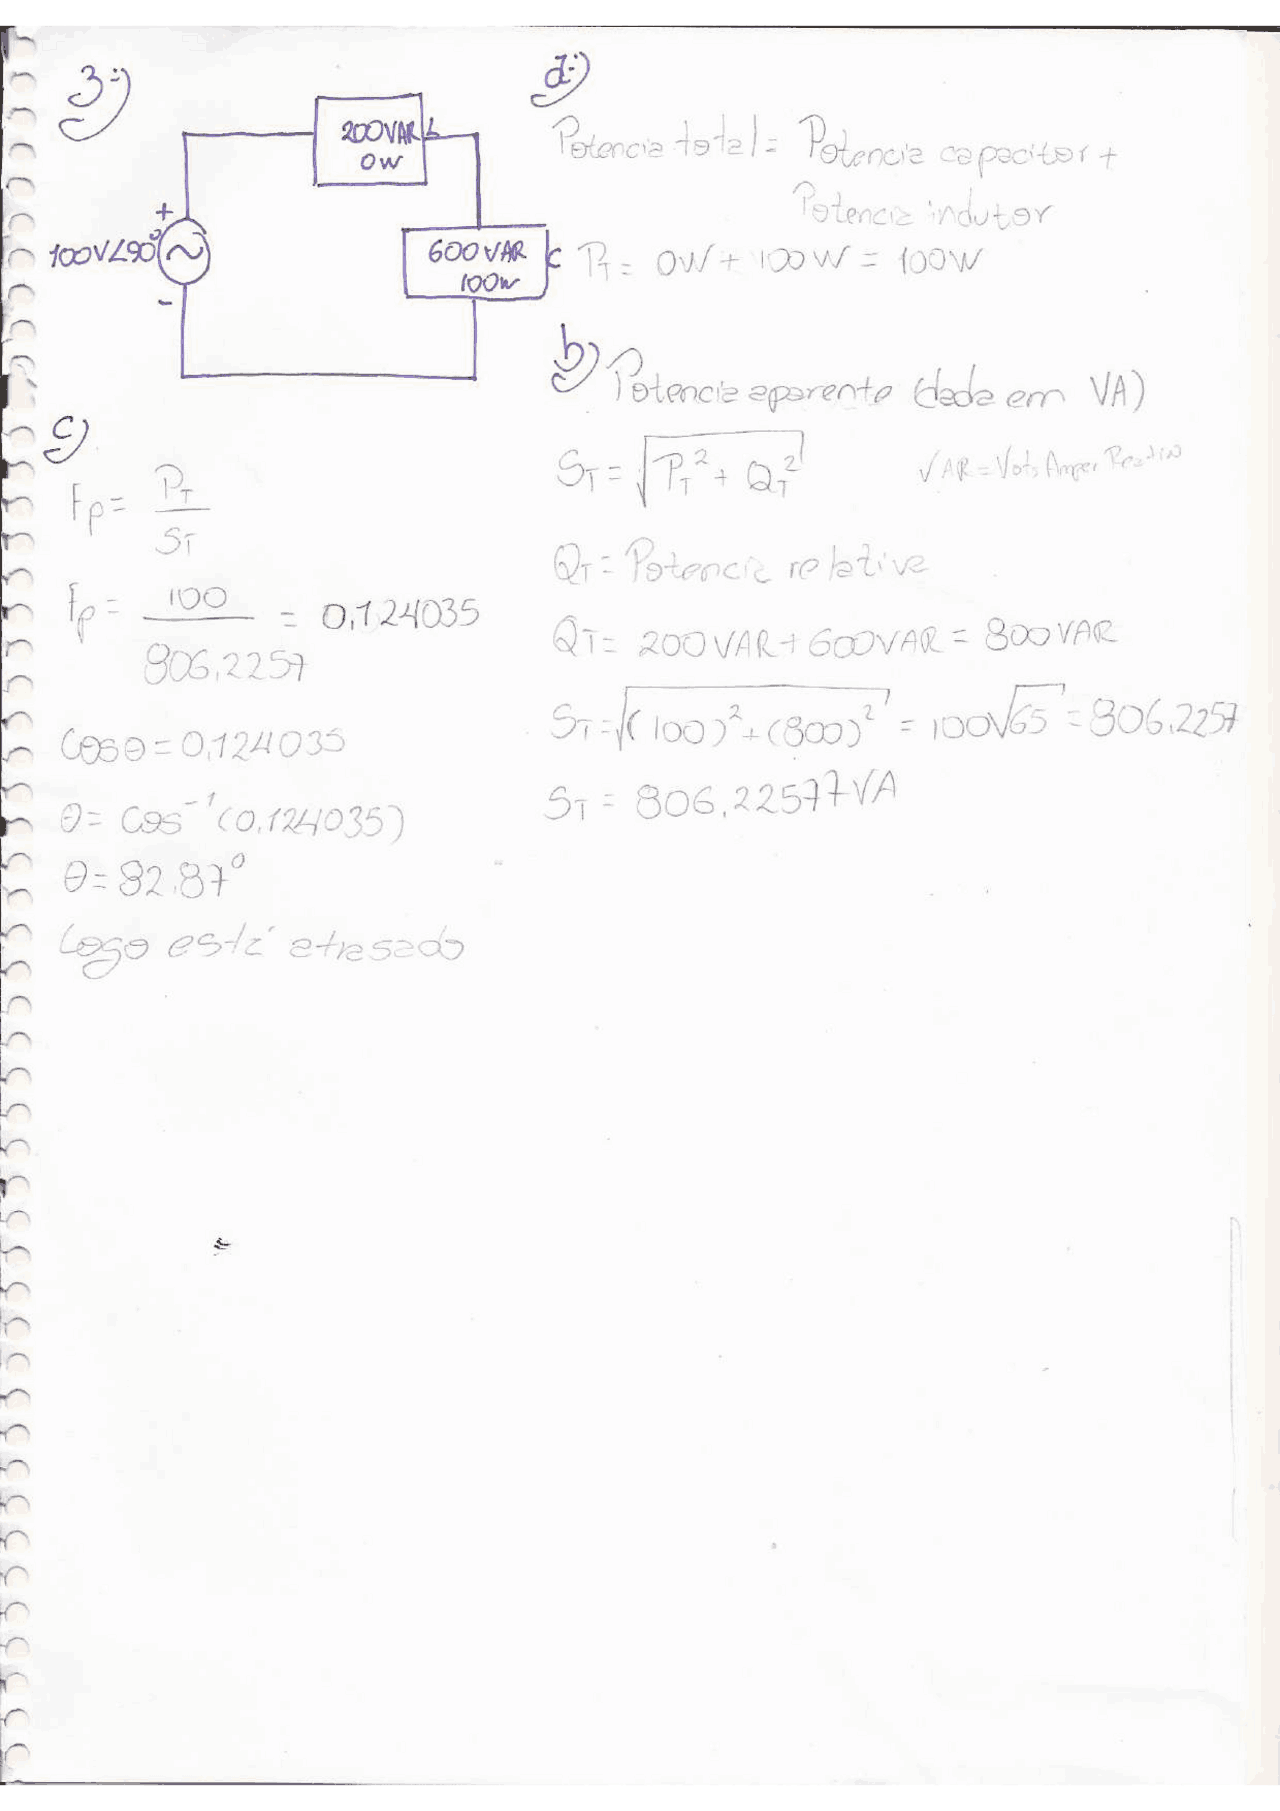 3-)
200VAR L
0W
+
100V∠90°
-
600VAR C
100W
d-)
Potencia total = Potencia capacitor +
Potencia indutor
PT = 0W + 100W = 100W
b)
Potencia aparente (dada em VA)
ST = √PT² + QT²
VAR = Vots Amper Reativo
QT = Potencia relativa
QT = 200VAR + 600VAR = 800VAR
ST = √(100)² + (800)² = 100√65 = 806,2257
ST = 806,22577VA
c)
Fp = PT / ST
Fp = 100 / 806,2257 = 0,124035
Cosθ = 0,124035
θ = Cos⁻¹(0,124035)
θ = 82,87°
Logo está atrasado